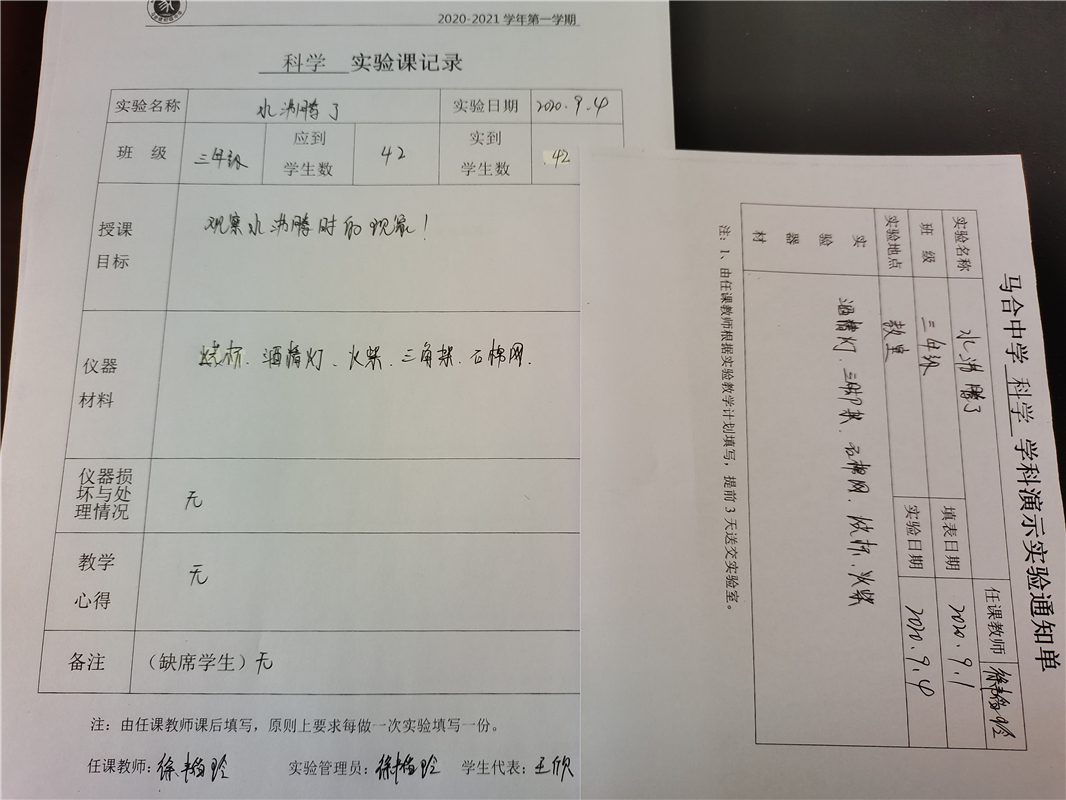 2020-2021 学年第一学期
科学 实验课记录
实验名称 水沸腾了 实验日期 2020.9.4
班 级 三年级 应到学生数 42 实到学生数 42
授课目标 观察水沸腾时的现象!
仪器材料 烧杯、酒精灯、火柴、三角架、石棉网.
仪器损坏与处理情况 无
教学心得 无
备注 (缺席学生)无
注:由任课教师课后填写,原则上要求每做一次实验填写一份。
任课教师: 实验管理员: 学生代表:王欣
马合中学 科学 学科演示实验通知单
任课教师
实验名称 水沸腾了
班 级 三年级 填表日期 2020.9.1
实验地点 教室 实验日期 2020.9.4
实验器材 酒精灯、三脚架、石棉网、烧杯、火柴
注:1、由任课教师根据实验教学计划填写,提前3天送交实验室。